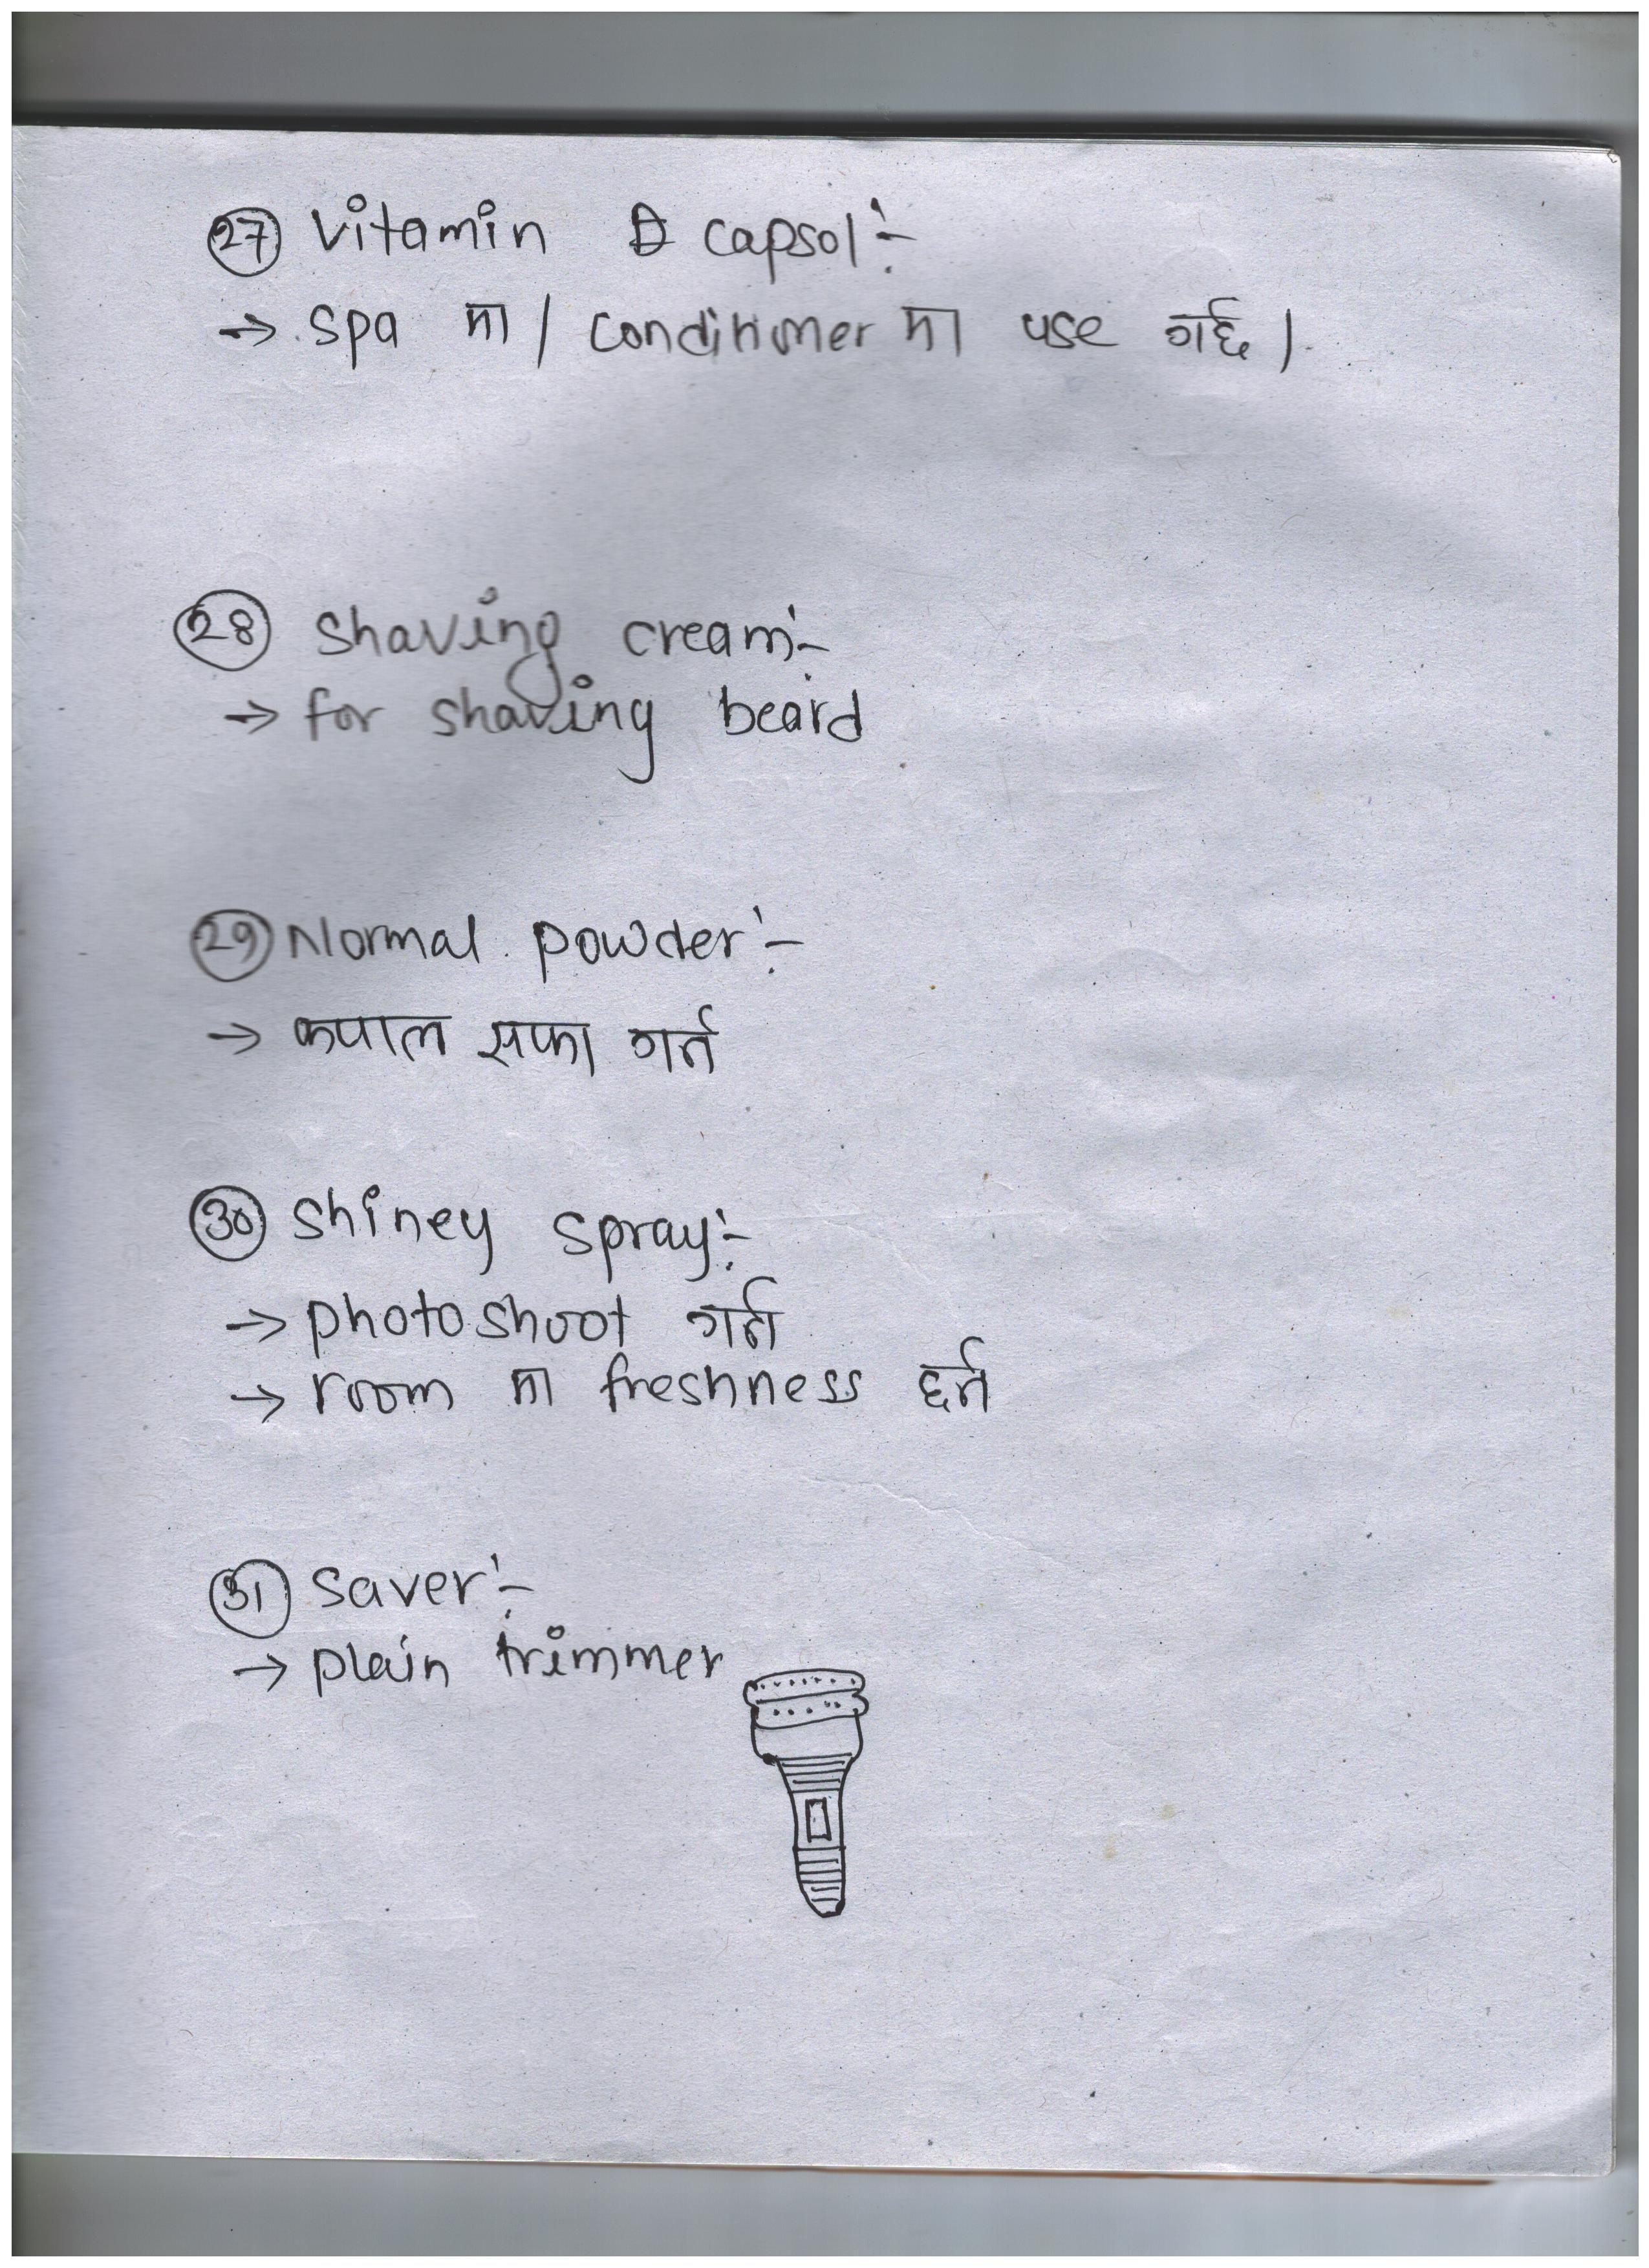 27 Vitamin D capsol:-
→ spa मा / conditioner मा use गर्छ ।
28 shaving cream:-
→ for shaving beard
29 Normal powder:-
→ कपाल सफा गर्न
30 shiney spray:-
→ photoshoot गर्न
→ room मा freshness छर्न
31 saver:-
→ plain trimmer